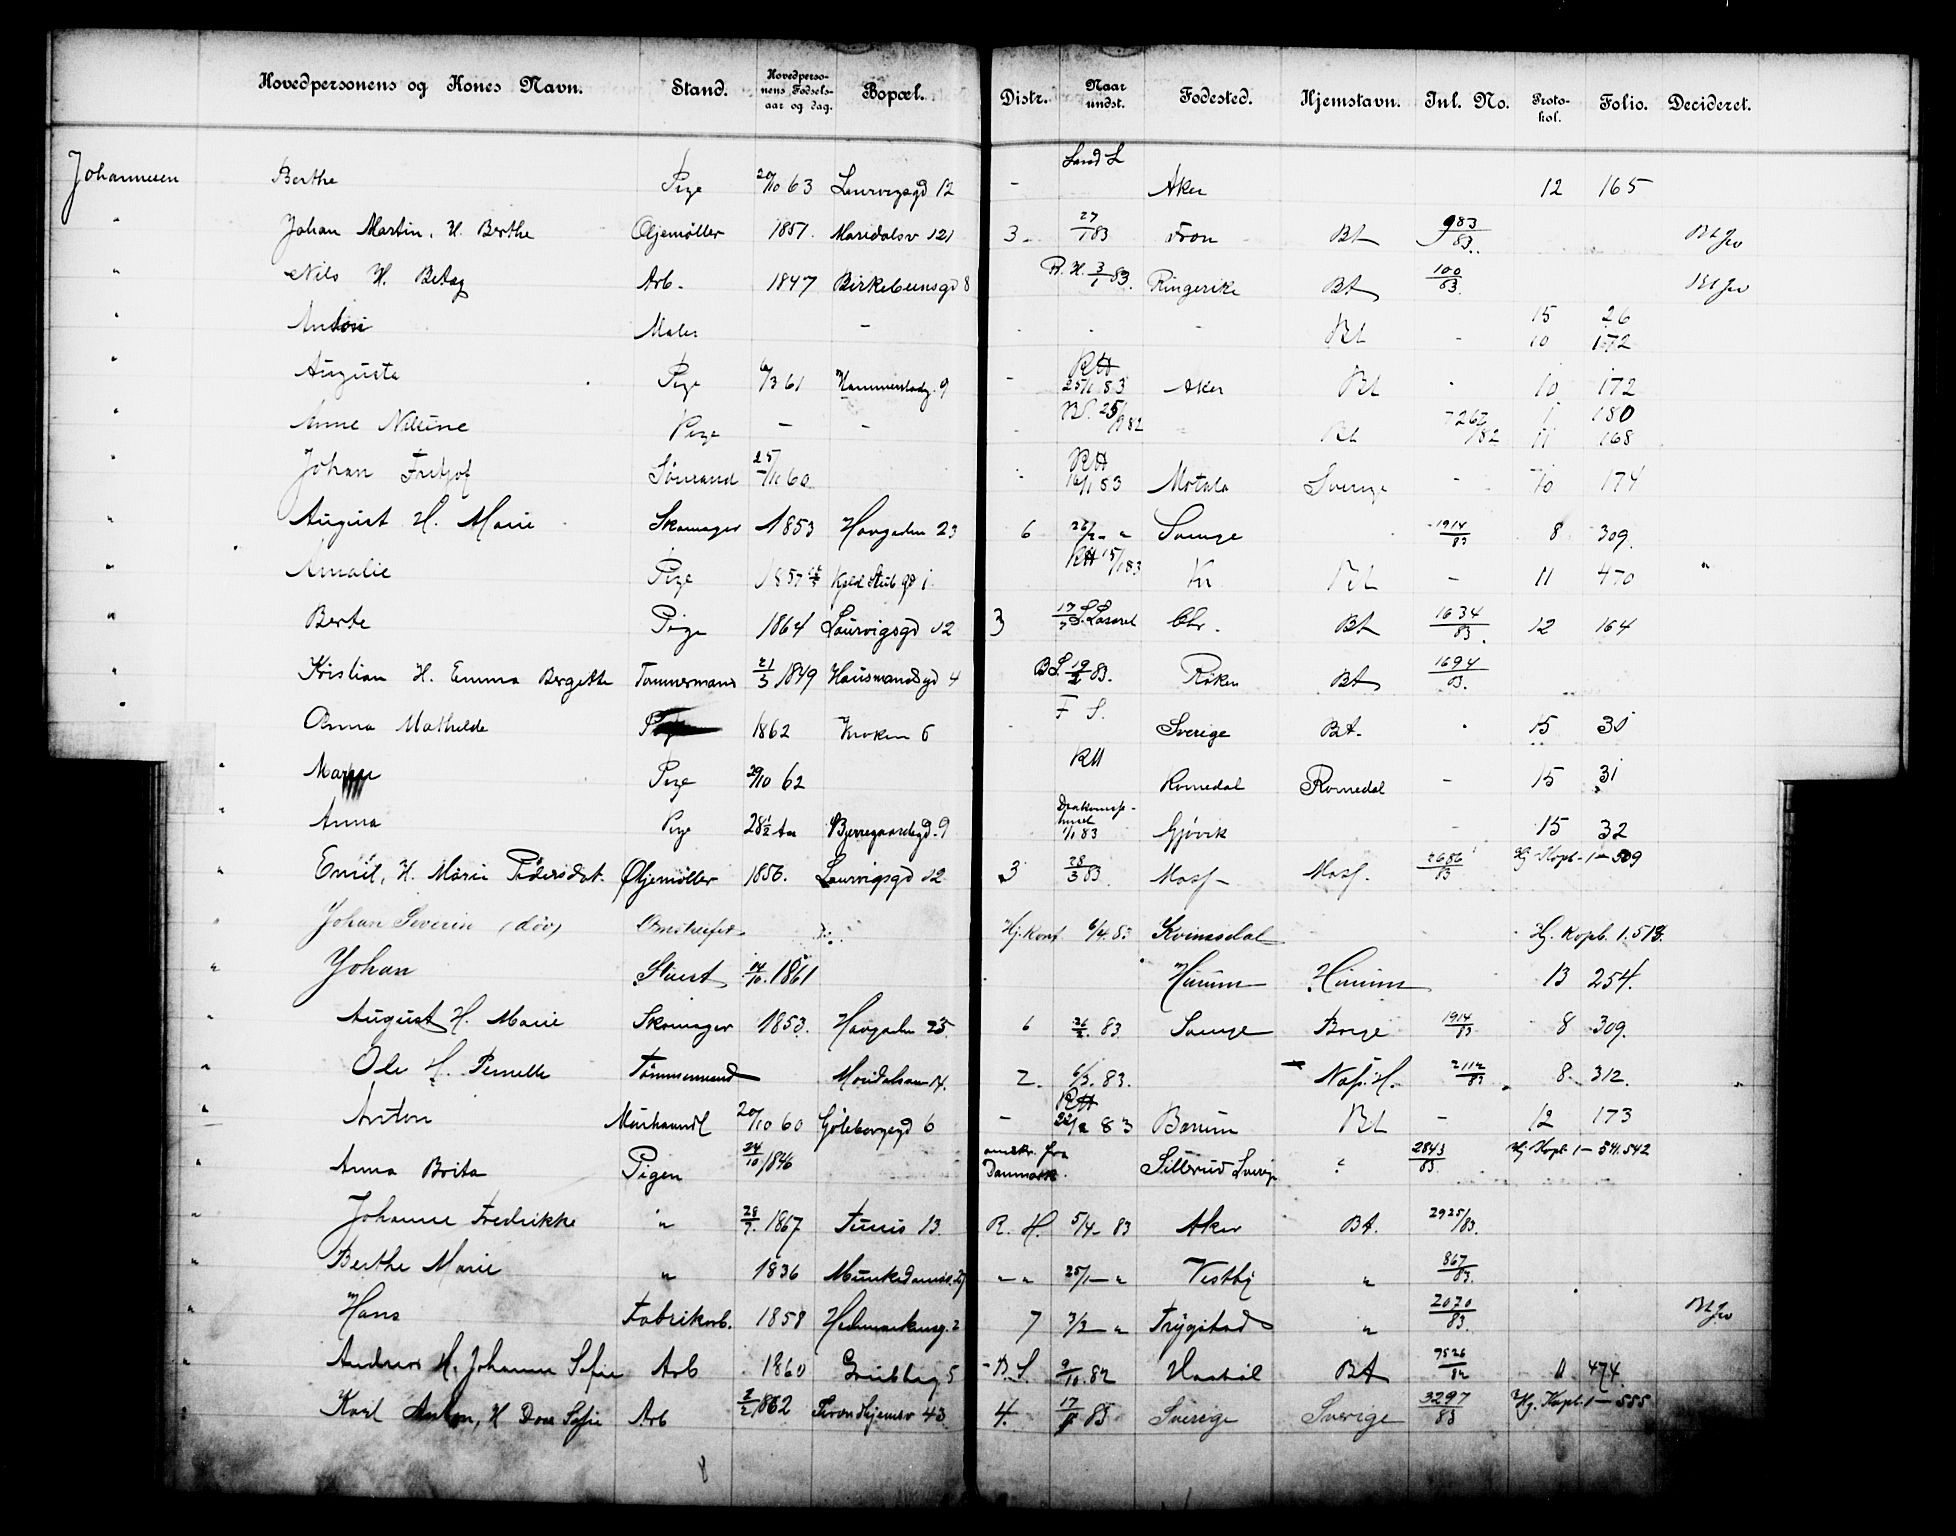 Hovedpersonens og Kones Navn. Stand. Hovedpersonens Fødselsaar og dag. Bopæl. Distr. Naar undst. Fødested. Hjemstavn. Inl. No. Protokol. Folio. Decideret.
Johannesen Berthe Pige 20/10 63 Laurvigsgd 12 - Land L Aker 12 165
" Johan Martin, H. Berthe Oljemøller 1851. Maridalsv 121 3 - 27/1 83 Fron Bt 983/83. Bt Jo
" Nils H. Betzy Arb. 1847 Birkebeensgd 8 R. H. 3/1 83. Ringerike Bt 100/83. Bt Jo
" Anton Maler - - Bt - 15 26
10 172
" Auguste Pige 6/3 61 Hammerstadg. 9 - RH 25/1 83 Aker Bt 10 172
" Anne Nilsine Pige - - 82 Bt 7262/82 1 180
11 168
" Johan Fritjof Sömand 25/11 60 RH 16/1 83 Motala Sverige - 10 174
" August H. Marie Skomager 1853 Havgaden 23 6 26/2 - " Sverige 1914/83 8 309.
" Amalie Pige 1857 Keld Stubgd 1 RH 15/1 83 Kr Bt - 11 470 "
" Berte Pige 1864 Laurvigsgd 12 3 17/2 S. Lasaret Chr. Bt 1634/83. 12 164
" Kristian H. Emma Bergitte Tømmermand 21/3 1849 Hausmandsgd 4 BS. 19/2 83. Røken Bt 1694/83.
" Anna Mathilde 1862 Kroken 6 F S. Sverige Bt. 15 31
" Pige 29/10 62 RH Romedal Romedal - 15 31
" Anna Pige 28 1/2 Aar Bjerregaardsgd. 9 1/1 83 Gjövik - 15 32
" Emil, H. Marie Pedersdat. Oljemøller 1856. Laurvigsgd 12 3 28/3 83 Moss - Moss. 2686/83 Hj. Kopb. 1 - 509
" Johan Severin (döv) Hj. Kont. 6/4 83 Kvinesdal Hj. Kopb. 1. 513.
" Johan Stuert 14/10. 1861 Hurum Hurum 13 254.
" August H. Marie Skomager 1853. Havgaden 23. 6 26/2. 83 Sverige Borge 1914/83 8 309.
" Ole H. Pernelle Tömmermand Maridalsvn 14. 2. 6/3. 83. 2112/83 8. 312.
" Anton Murhaandl 20/10 60 Göteborgsgd 6 - RH 22/2 83 Bærum Bt - 12 173
" Anna Brita Pigen 24/10 1846 Danmark. Sillerud Sverige " 2843/83. Hj. Kopb. 1 - 541.542
" Johanne Fredrikke " 28/7. 1867 Tunis 13. R. H. 5/4 - 83 Aker Bt. 2925/83.
" Berthe Marie " 1836 Munkedamsv. " " 25/1 - " Vestby " 867/83.
" Hans Fabrikarb. 1858 Hedmarksg. 2 7 3/3 - " Trygstad " 2070/83. Bt Jo
" Andreas H. Johanne Sofie Arb 1860 5 - B. S. 9/10. 82 Bt 9526/82 11 474
" Karl Anton, H Dore Sofie Arb 2/2 1862 Trondhjemsv 43 4. 17/ 83 Sverige Sverige 3297/83 Hj. Kopb. 1 - 555
8